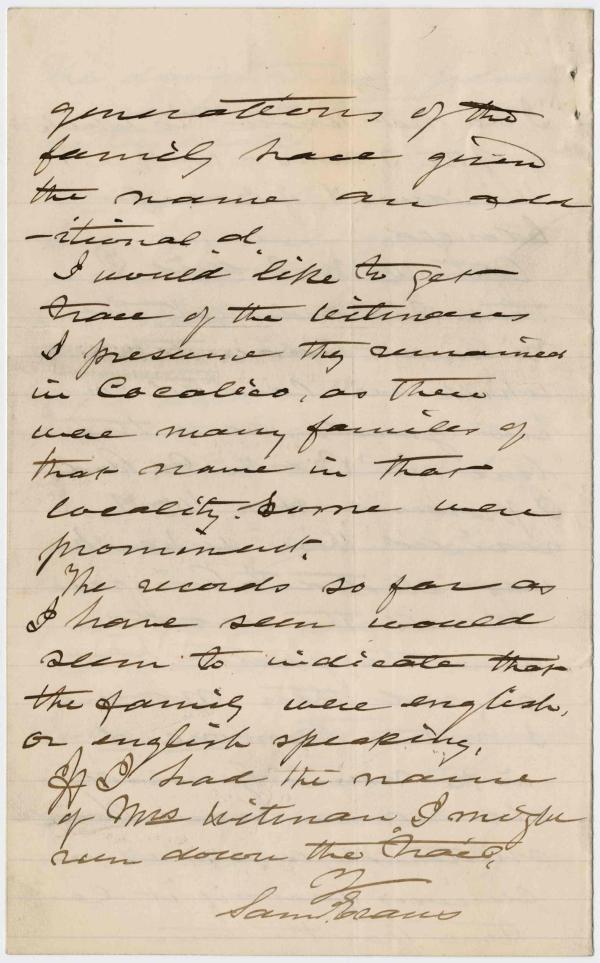 generations of the
family have given
the name an add
-itional d.
I would like to get
trace of the Witmans
I presume they remained
in Cocalico, as there
were many families of
that name in that
locality. Some were
prominent.
The records so far as
I have seen would
seem to indicate that
the family were english,
or english speaking.
If I had the name
of Mrs Witman I might
run down the trail.
Saml. Evans